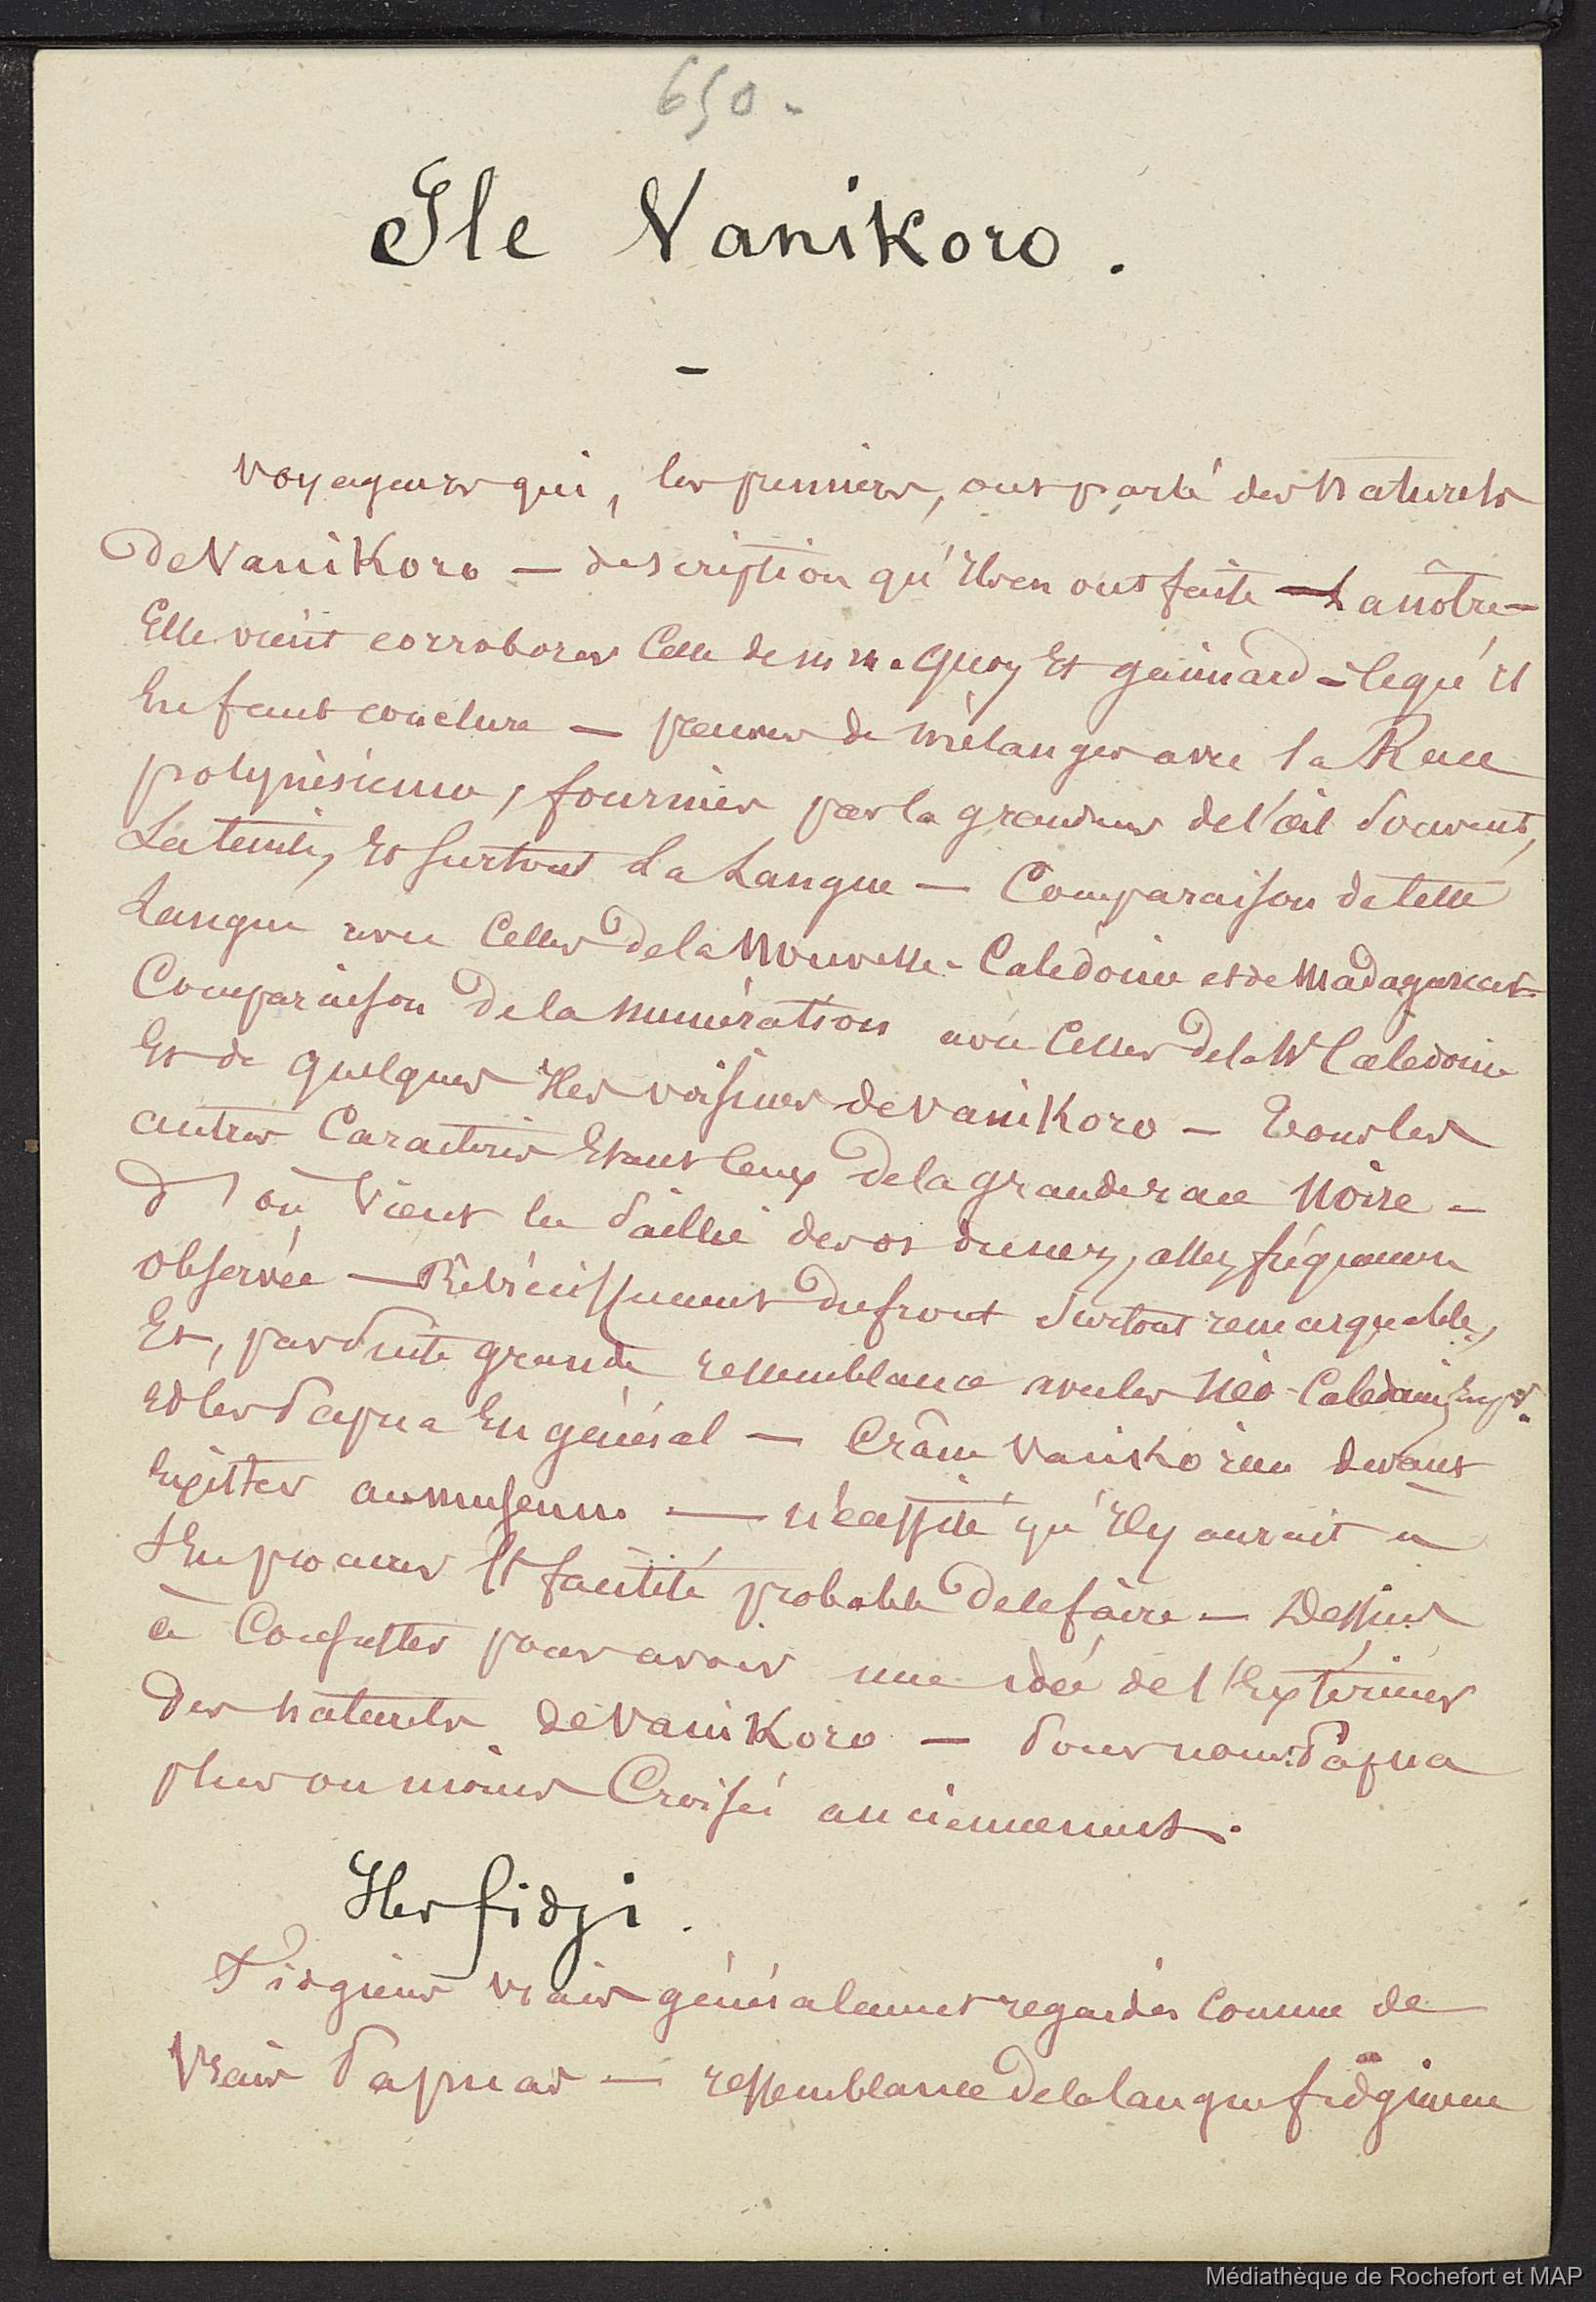 650.
Ile Vanikoro.
—
voyageurs qui, les premiers, ont parlé des naturels
de Vanikoro — description qu'ils en ont faite — La nôtre —
Elle vient corroborer Celle de m m. Quoy Et gaimard — ce qu'il
En faut conclure — preuves de mélanges avec la Race
polynésienne, fournies par la grandeur de l'œil souvent,
La teinte, Et surtout La Langue — Comparaison de cette
Langue avec Celles de la Nouvelle-Calédonie et de Madagascar —
Comparaison de la numération avec Celles de la Nlle Caledonie
Et de quelques Iles voisines de Vanikoro — Tous les
autres Caractères Etant Ceux de la grande race Noire —
D'où Vient la saillie des os du nez, assez fréquemment
observée — Rétrécissement du front surtout remarquable,
Et, par suite grande ressemblance avec les Néo-Calédoniens
Et les Papua En général — Crâne Vanikorien devant
Exister au museum — nécessité qu'il y aurait a
s'En procurer Et facilité probable de le faire — Dessins
à Consulter pour avoir une idée de l'Extérieur
des naturels de Vanikoro — Pour nous: Papua
plus ou moins Croisés anciennement.
Iles fidji.
Fidgiens vrais généralement regardés comme de
Vrais Papuas — ressemblance de la langue fidgienne
Médiathèque de Rochefort et MAP